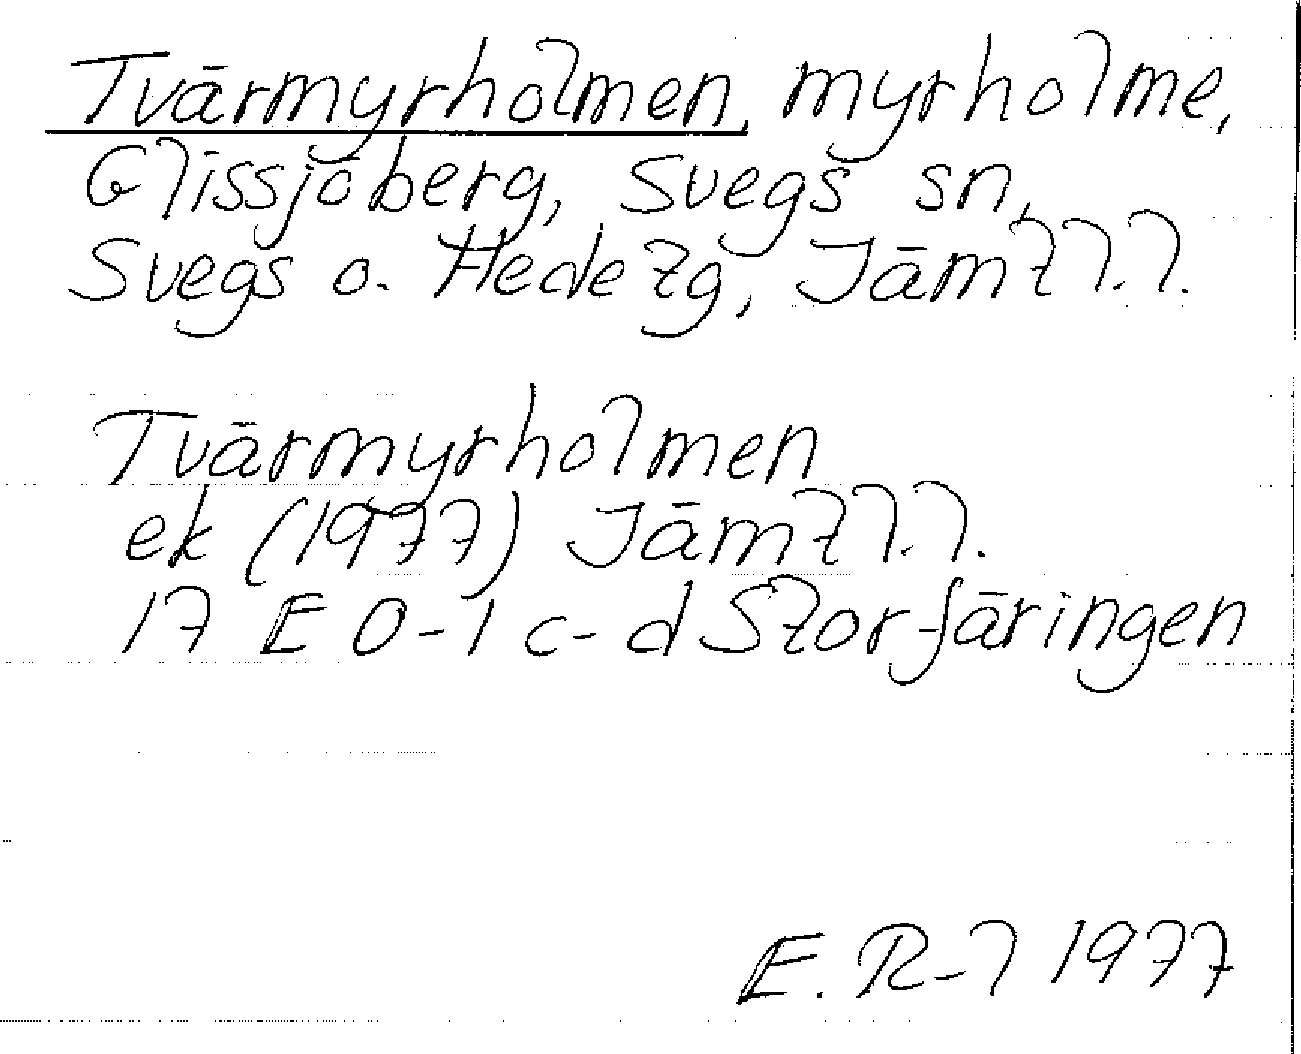 Tvärmyrholmen, myrholme,
Glissjöberg, Svegs sn,
Svegs o. Hede tg, Jämtl.l.
Tvärmyrholmen
ek (1977) Jämtl.l.
17 E 0-1 c-d Storfäringen
E. R-l 1977